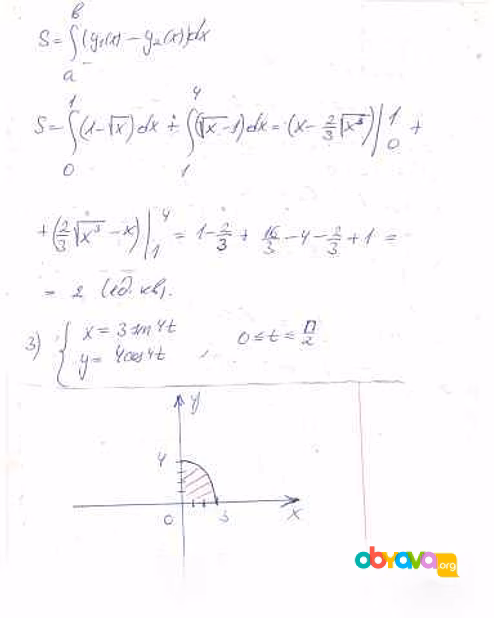 S = ∫ₐᵇ (y₁(x) − y₂(x)) dx
S = ∫₀¹ (1 − √x) dx + ∫₁⁴ (√x − 1) dx = (x − 2/3 √x³) |₀¹ +
+ (2/3 √x³ − x) |₁⁴ = 1 − 2/3 + 16/3 − 4 − 2/3 + 1 =
= 2 (ед. кв).
3) { x = 3 sin 4t
y = 4cos 4t , 0 ≤ t ≤ π/2
y
4
0 3 x
obyava.org